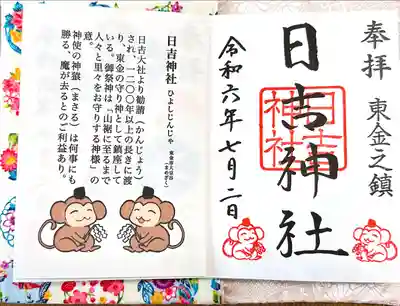 奉拝 東金之鎮
日吉神社
日吉神社
令和六年七月二日
日吉神社 ひよしじんじゃ
東金市大豆谷
(まめざく)
日吉大社より勧請(かんじょう)
され、一二〇〇年以上の長きに渡
り、東金の守り神として鎮座して
いる。御祭神は「山褹に至るまで
人々と里々をお守りする神様」の
意。
神使の神猿(まさる)は何事にも
勝る、魔が去るとのご利益あり。